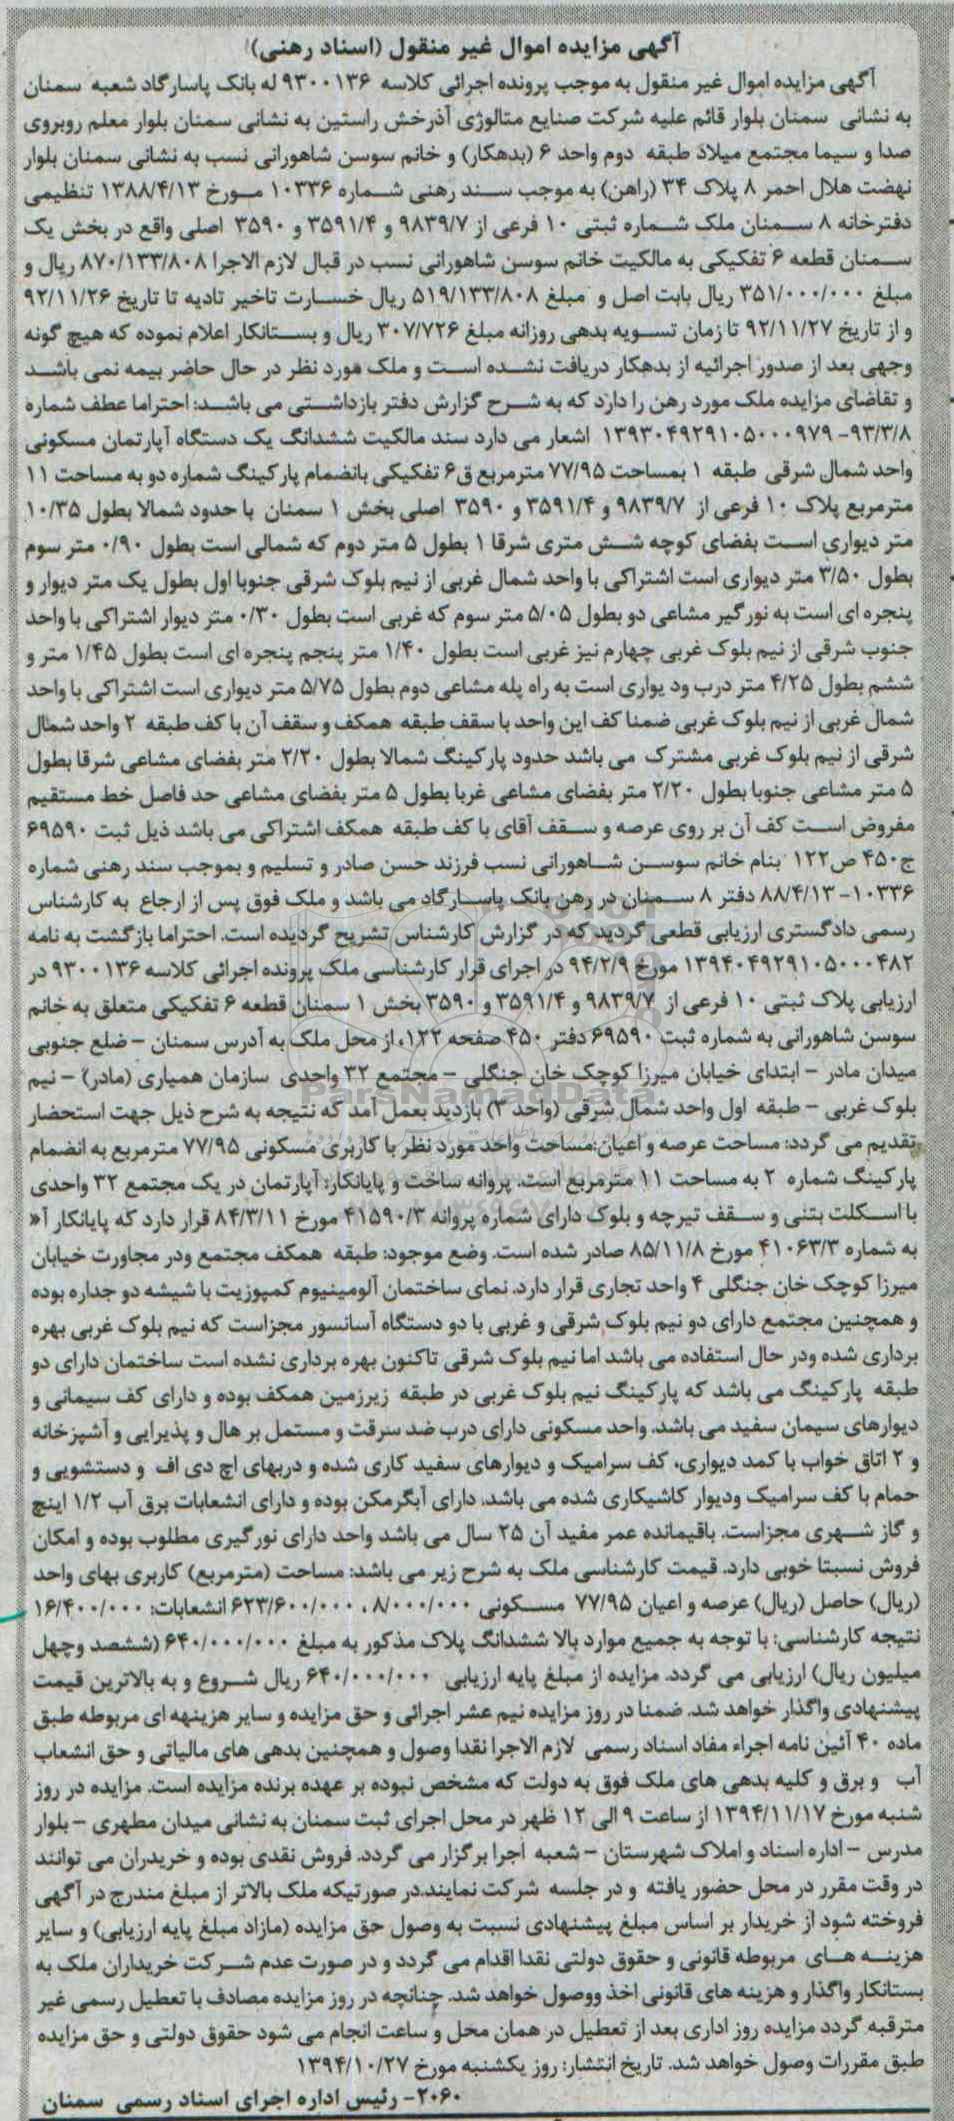 آگهی مزایده اموال غیر منقول (اسناد رهنی)
آگهی مزایده اموال غیر منقول به موجب پرونده اجرائی کلاسه ۹۳۰۰۱۳۶ له بانک پاسارگاد شعبه سمنان
به نشانی سمنان بلوار قائم علیه شرکت صنایع متالوژی آذرخش راستین به نشانی سمنان بلوار معلم روبروی
صدا و سیما مجتمع میلاد طبقه دوم واحد ۶ (بدهکار) و خانم سوسن شاهورانی نسب به نشانی سمنان بلوار
نهضت هلال احمر ۸ پلاک ۳۴ (راهن) به موجب سند رهنی شماره ۱۰۳۳۶ مورخ ۱۳۸۸/۴/۱۳ تنظیمی
دفترخانه ۸ سمنان ملک شماره ثبتی ۱۰ فرعی از ۹۸۳۹/۷ و ۳۵۹۱/۴ و ۳۵۹۰ اصلی واقع در بخش یک
سمنان قطعه ۶ تفکیکی به مالکیت خانم سوسن شاهورانی نسب در قبال لازم الاجرا ۸۷۰/۱۳۳/۸۰۸ ریال و
مبلغ ۳۵۱/۰۰۰/۰۰۰ ریال بابت اصل و مبلغ ۵۱۹/۱۳۳/۸۰۸ ریال خسارت تاخیر تادیه تا تاریخ ۹۲/۱۱/۲۶
و از تاریخ ۹۲/۱۱/۲۷ تا زمان تسویه بدهی روزانه مبلغ ۳۰۷/۷۲۶ ریال و بستانکار اعلام نموده که هیچ گونه
وجهی بعد از صدور اجرائیه از بدهکار دریافت نشده است و ملک مورد نظر در حال حاضر بیمه نمی باشد
و تقاضای مزایده ملک مورد رهن را دارد که به شرح گزارش دفتر بازداشتی می باشد: احتراما عطف شماره
۹۳/۳/۸- ۱۳۹۳۰۴۹۲۹۱۰۵۰۰۰۹۷۹ اشعار می دارد سند مالکیت ششدانگ یک دستگاه آپارتمان مسکونی
واحد شمال شرقی طبقه ۱ بمساحت ۷۷/۹۵ مترمربع ق۶ تفکیکی بانضمام پارکینگ شماره دو به مساحت ۱۱
مترمربع پلاک ۱۰ فرعی از ۹۸۳۹/۷ و ۳۵۹۱/۴ و ۳۵۹۰ اصلی بخش ۱ سمنان با حدود شمالا بطول ۱۰/۳۵
متر دیواری است بفضای کوچه شش متری شرقا ۱ بطول ۵ متر دوم که شمالی است بطول ۰/۹۰ متر سوم
بطول ۳/۵۰ متر دیواری است اشتراکی با واحد شمال غربی از نیم بلوک شرقی جنوبا اول بطول یک متر دیوار و
پنجره ای است به نورگیر مشاعی دو بطول ۵/۰۵ متر سوم که غربی است بطول ۰/۳۰ متر دیوار اشتراکی با واحد
جنوب شرقی از نیم بلوک غربی چهارم نیز غربی است بطول ۱/۴۰ متر پنجم پنجره ای است بطول ۱/۴۵ متر و
ششم بطول ۴/۲۵ متر درب ود یواری است به راه پله مشاعی دوم بطول ۵/۷۵ متر دیواری است اشتراکی با واحد
شمال غربی از نیم بلوک غربی ضمنا کف این واحد با سقف طبقه همکف و سقف آن با کف طبقه ۲ واحد شمال
شرقی از نیم بلوک غربی مشترک می باشد حدود پارکینگ شمالا بطول ۲/۲۰ متر بفضای مشاعی شرقا بطول
۵ متر مشاعی جنوبا بطول ۲/۲۰ متر بفضای مشاعی غربا بطول ۵ متر بفضای مشاعی حد فاصل خط مستقیم
مفروض است کف آن بر روی عرصه و سقف آقای با کف طبقه همکف اشتراکی می باشد ذیل ثبت ۶۹۵۹۰
ج۴۵۰ ص۱۲۲ بنام خانم سوسن شاهورانی نسب فرزند حسن صادر و تسلیم و بموجب سند رهنی شماره
۱۰۳۳۶- ۸۸/۴/۱۳ دفتر ۸ سمنان در رهن بانک پاسارگاد می باشد و ملک فوق پس از ارجاع به کارشناس
رسمی دادگستری ارزیابی قطعی گردید که در گزارش کارشناس تشریح گردیده است. احتراما بازگشت به نامه
۱۳۹۴۰۴۹۲۹۱۰۵۰۰۰۴۸۲ مورخ ۹۴/۲/۹ در اجرای قرار کارشناسی ملک پرونده اجرائی کلاسه ۹۳۰۰۱۳۶ در
ارزیابی پلاک ثبتی ۱۰ فرعی از ۹۸۳۹/۷ و ۳۵۹۱/۴ و ۳۵۹۰ بخش ۱ سمنان قطعه ۶ تفکیکی متعلق به خانم
سوسن شاهورانی به شماره ثبت ۶۹۵۹۰ دفتر ۴۵۰ صفحه ۱۲۲، از محل ملک به آدرس سمنان - ضلع جنوبی
میدان مادر - ابتدای خیابان میرزا کوچک خان جنگلی - مجتمع ۳۲ واحدی سازمان همیاری (مادر) - نیم
بلوک غربی - طبقه اول واحد شمال شرقی (واحد ۳) بازدید بعمل آمد که نتیجه به شرح ذیل جهت استحضار
تقدیم می گردد: مساحت عرصه و اعیان:مساحت واحد مورد نظر با کاربری مسکونی ۷۷/۹۵ مترمربع به انضمام
پارکینگ شماره ۲ به مساحت ۱۱ مترمربع است. پروانه ساخت و پایانکار: آپارتمان در یک مجتمع ۳۲ واحدی
با اسکلت بتنی و سقف تیرچه و بلوک دارای شماره پروانه ۴۱۵۹۰/۳ مورخ ۸۴/۳/۱۱ قرار دارد که پایانکار آن
به شماره ۴۱۰۶۳/۳ مورخ ۸۵/۱۱/۸ صادر شده است. وضع موجود: طبقه همکف مجتمع ودر مجاورت خیابان
میرزا کوچک خان جنگلی ۴ واحد تجاری قرار دارد. نمای ساختمان آلومینیوم کمپوزیت با شیشه دو جداره بوده
و همچنین مجتمع دارای دو نیم بلوک شرقی و غربی با دو دستگاه آسانسور مجزاست که نیم بلوک غربی بهره
برداری شده ودر حال استفاده می باشد اما نیم بلوک شرقی تاکنون بهره برداری نشده است ساختمان دارای دو
طبقه پارکینگ می باشد که پارکینگ نیم بلوک غربی در طبقه زیرزمین همکف بوده و دارای کف سیمانی و
دیوارهای سیمان سفید می باشد. واحد مسکونی دارای درب ضد سرقت و مستمل بر هال و پذیرایی و آشپزخانه
و ۲ اتاق خواب با کمد دیواری، کف سرامیک و دیوارهای سفید کاری شده و دربهای اچ دی اف و دستشویی و
حمام با کف سرامیک ودیوار کاشیکاری شده می باشد. دارای آبگرمکن بوده و دارای انشعابات برق آب ۱/۲ اینچ
و گاز شهری مجزاست. باقیمانده عمر مفید آن ۲۵ سال می باشد واحد دارای نورگیری مطلوب بوده و امکان
فروش نسبتا خوبی دارد. قیمت کارشناسی ملک به شرح زیر می باشد: مساحت (مترمربع) کاربری بهای واحد
(ریال) حاصل (ریال) عرصه و اعیان ۷۷/۹۵ مسکونی ۸/۰۰۰/۰۰۰ ، ۶۲۳/۶۰۰/۰۰۰ انشعابات: ۱۶/۴۰۰/۰۰۰
نتیجه کارشناسی: با توجه به جمیع موارد بالا ششدانگ پلاک مذکور به مبلغ ۶۴۰/۰۰۰/۰۰۰ (ششصد وچهل
میلیون ریال) ارزیابی می گردد. مزایده از مبلغ پایه ارزیابی ۶۴۰/۰۰۰/۰۰۰ ریال شروع و به بالاترین قیمت
پیشنهادی واگذار خواهد شد. ضمنا در روز مزایده نیم عشر اجرائی و حق مزایده و سایر هزینهه ای مربوطه طبق
ماده ۴۰ آئین نامه اجراء مفاد اسناد رسمی لازم الاجرا نقدا وصول و همچنین بدهی های مالیاتی و حق انشعاب
آب و برق و کلیه بدهی های ملک فوق به دولت که مشخص نبوده بر عهده برنده مزایده است. مزایده در روز
شنبه مورخ ۱۳۹۴/۱۱/۱۷ از ساعت ۹ الی ۱۲ ظهر در محل اجرای ثبت سمنان به نشانی میدان مطهری - بلوار
مدرس - اداره اسناد و املاک شهرستان - شعبه اجرا برگزار می گردد. فروش نقدی بوده و خریدران می توانند
در وقت مقرر در محل حضور یافته و در جلسه شرکت نمایند.در صورتیکه ملک بالاتر از مبلغ مندرج در آگهی
فروخته شود از خریدار بر اساس مبلغ پیشنهادی نسبت به وصول حق مزایده (مازاد مبلغ پایه ارزیابی) و سایر
هزینه های مربوطه قانونی و حقوق دولتی نقدا اقدام می گردد و در صورت عدم شرکت خریداران ملک به
بستانکار واگذار و هزینه های قانونی اخذ ووصول خواهد شد. چنانچه در روز مزایده مصادف با تعطیل رسمی غیر
مترقبه گردد مزایده روز اداری بعد از تعطیل در همان محل و ساعت انجام می شود حقوق دولتی و حق مزایده
طبق مقررات وصول خواهد شد. تاریخ انتشار: روز یکشنبه مورخ ۱۳۹۴/۱۰/۲۷
۲۰۶۰- رئیس اداره اجرای اسناد رسمی سمنان
ParsNamadData